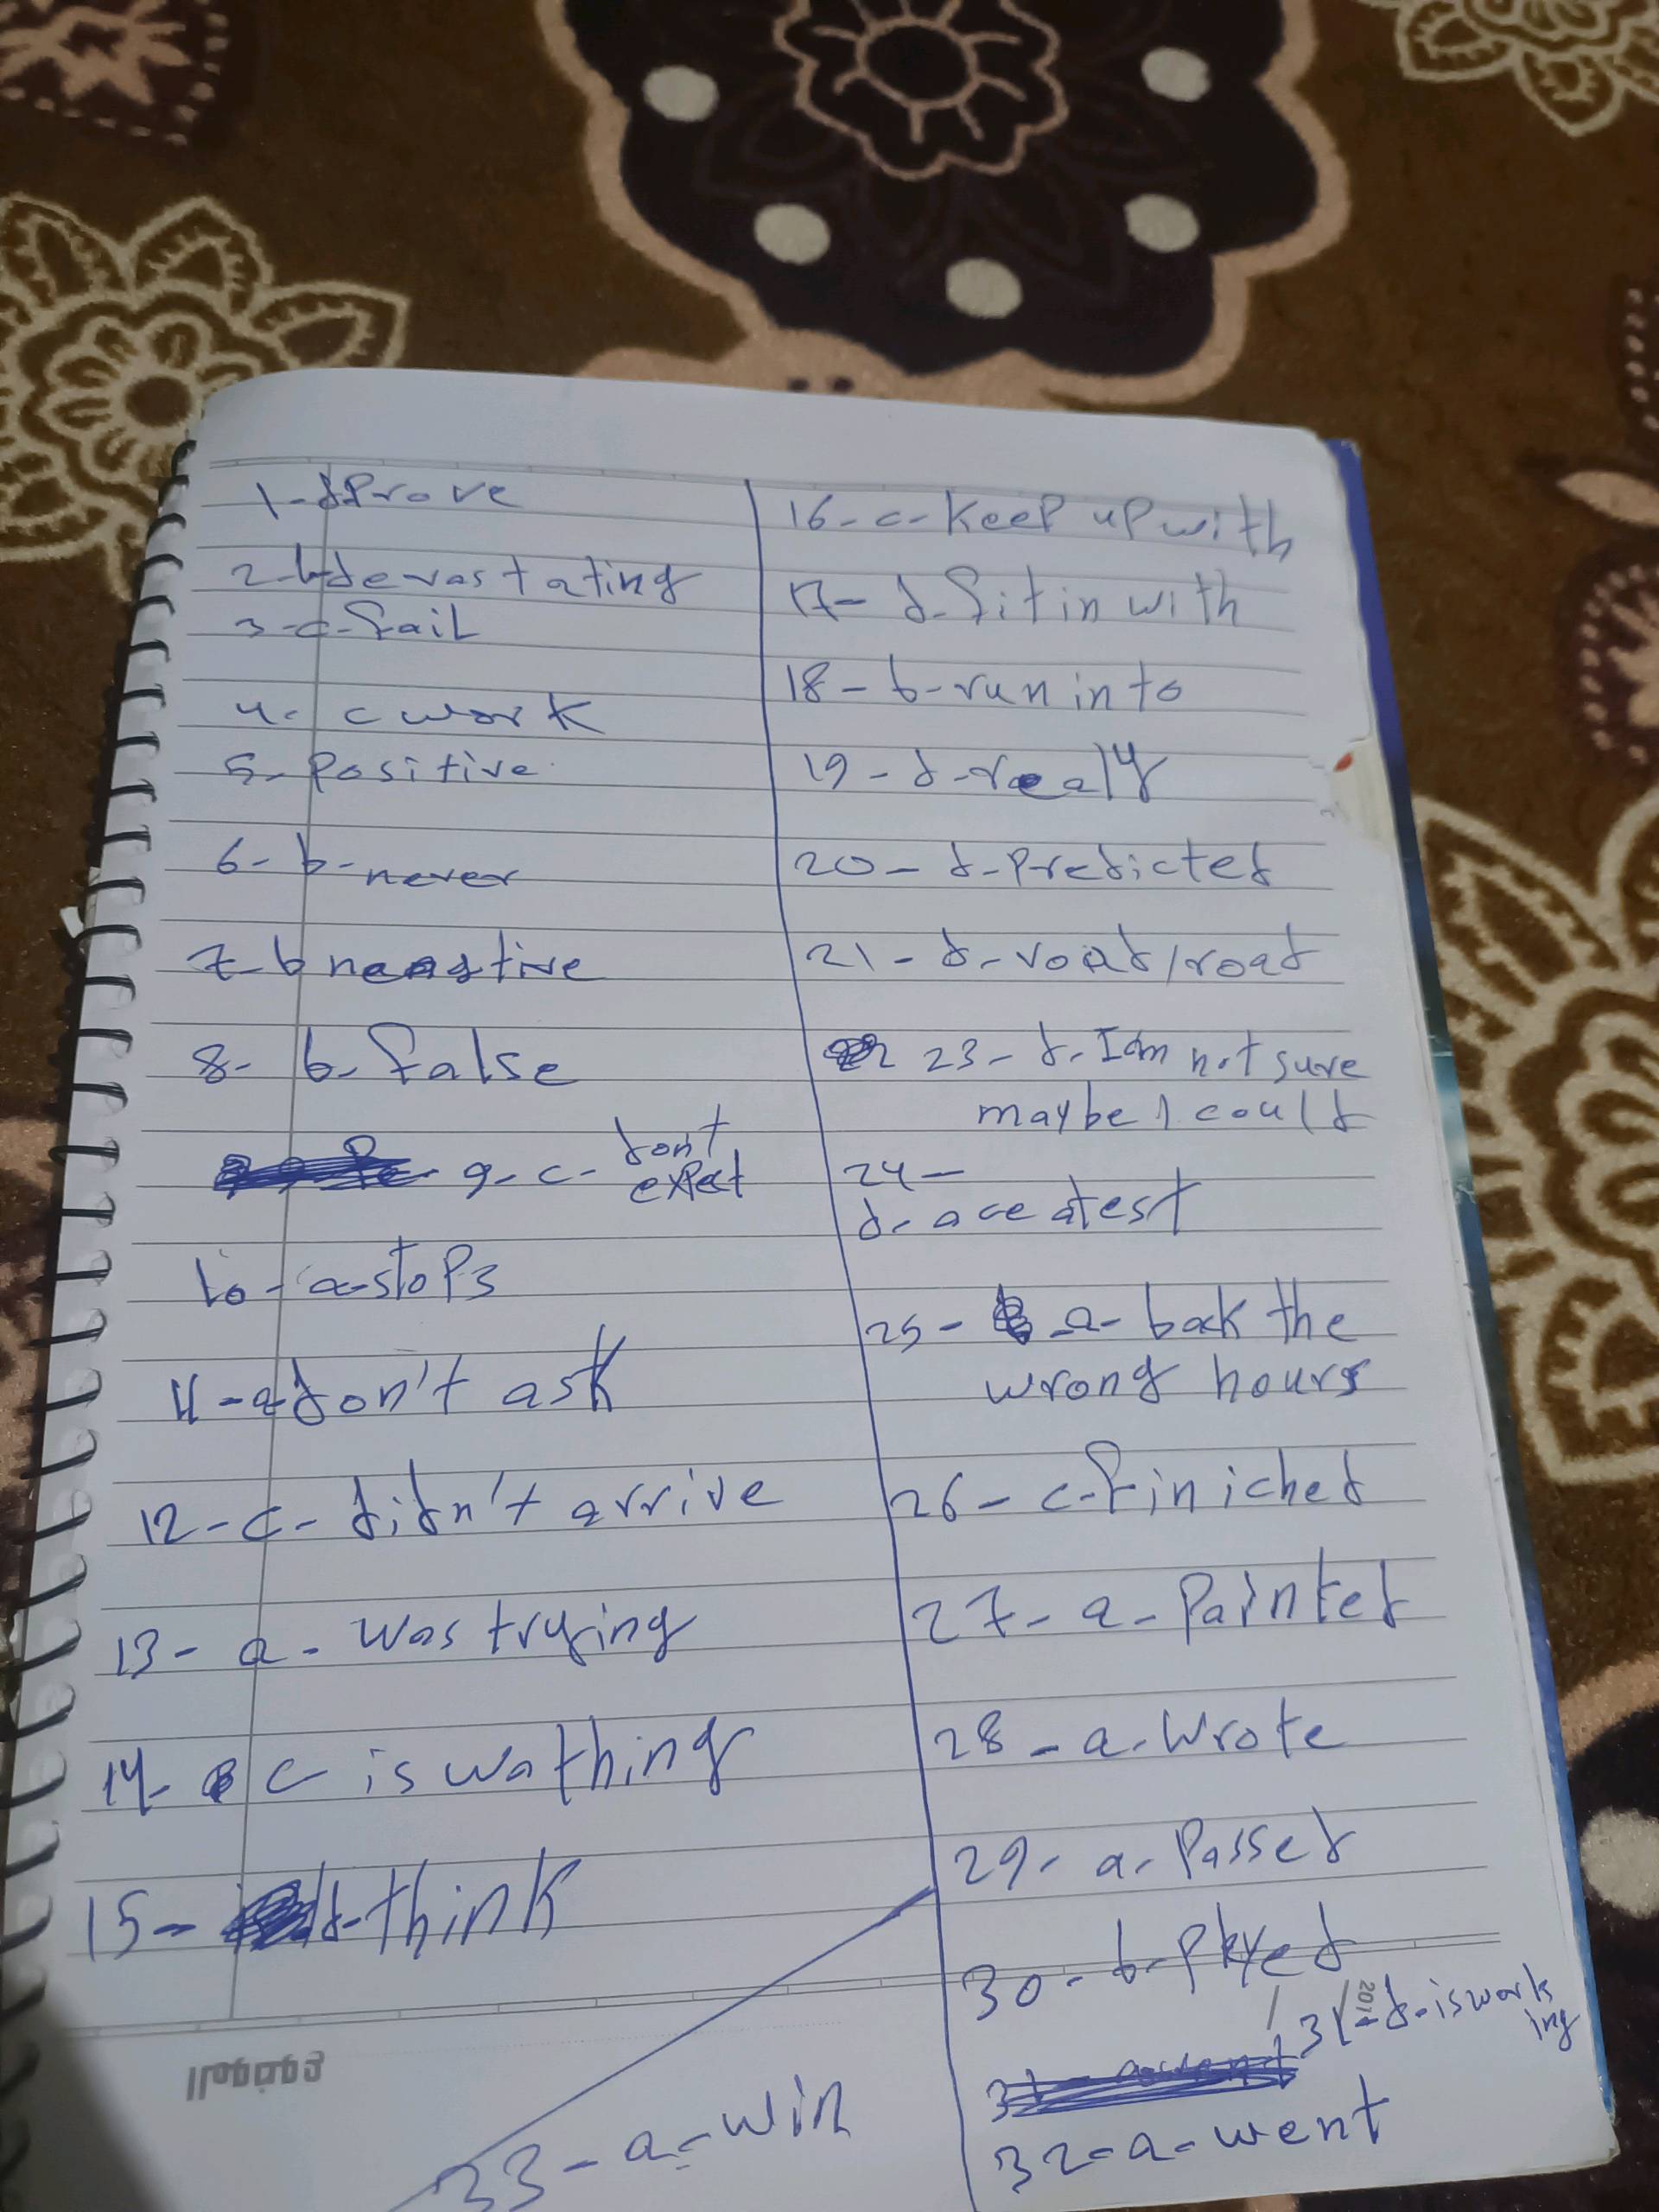 1-d Prove
2-b-devastating
3-c-fail
4-c work
5-positive
6-b-never
7-b neagtive
8-b-false
9-c-don't
expect
10-a-stops
11-a don't ask
12-c-didn't arrive
13-a-was trying
14-c is wathing
15-d-think
16-c-keep up with
17-d-fit in with
18-b-run into
19-d-realy
20-d-predicted
21-d-road/road
23-d-I am not sure
maybe I could
24-
d-ace atest
25-a-back the
wrong hours
26-c-finiched
27-a-painted
28-a-wrote
29-a-Passed
30-b-Played
31-d-is work
ing
32-a-went
33-a-win